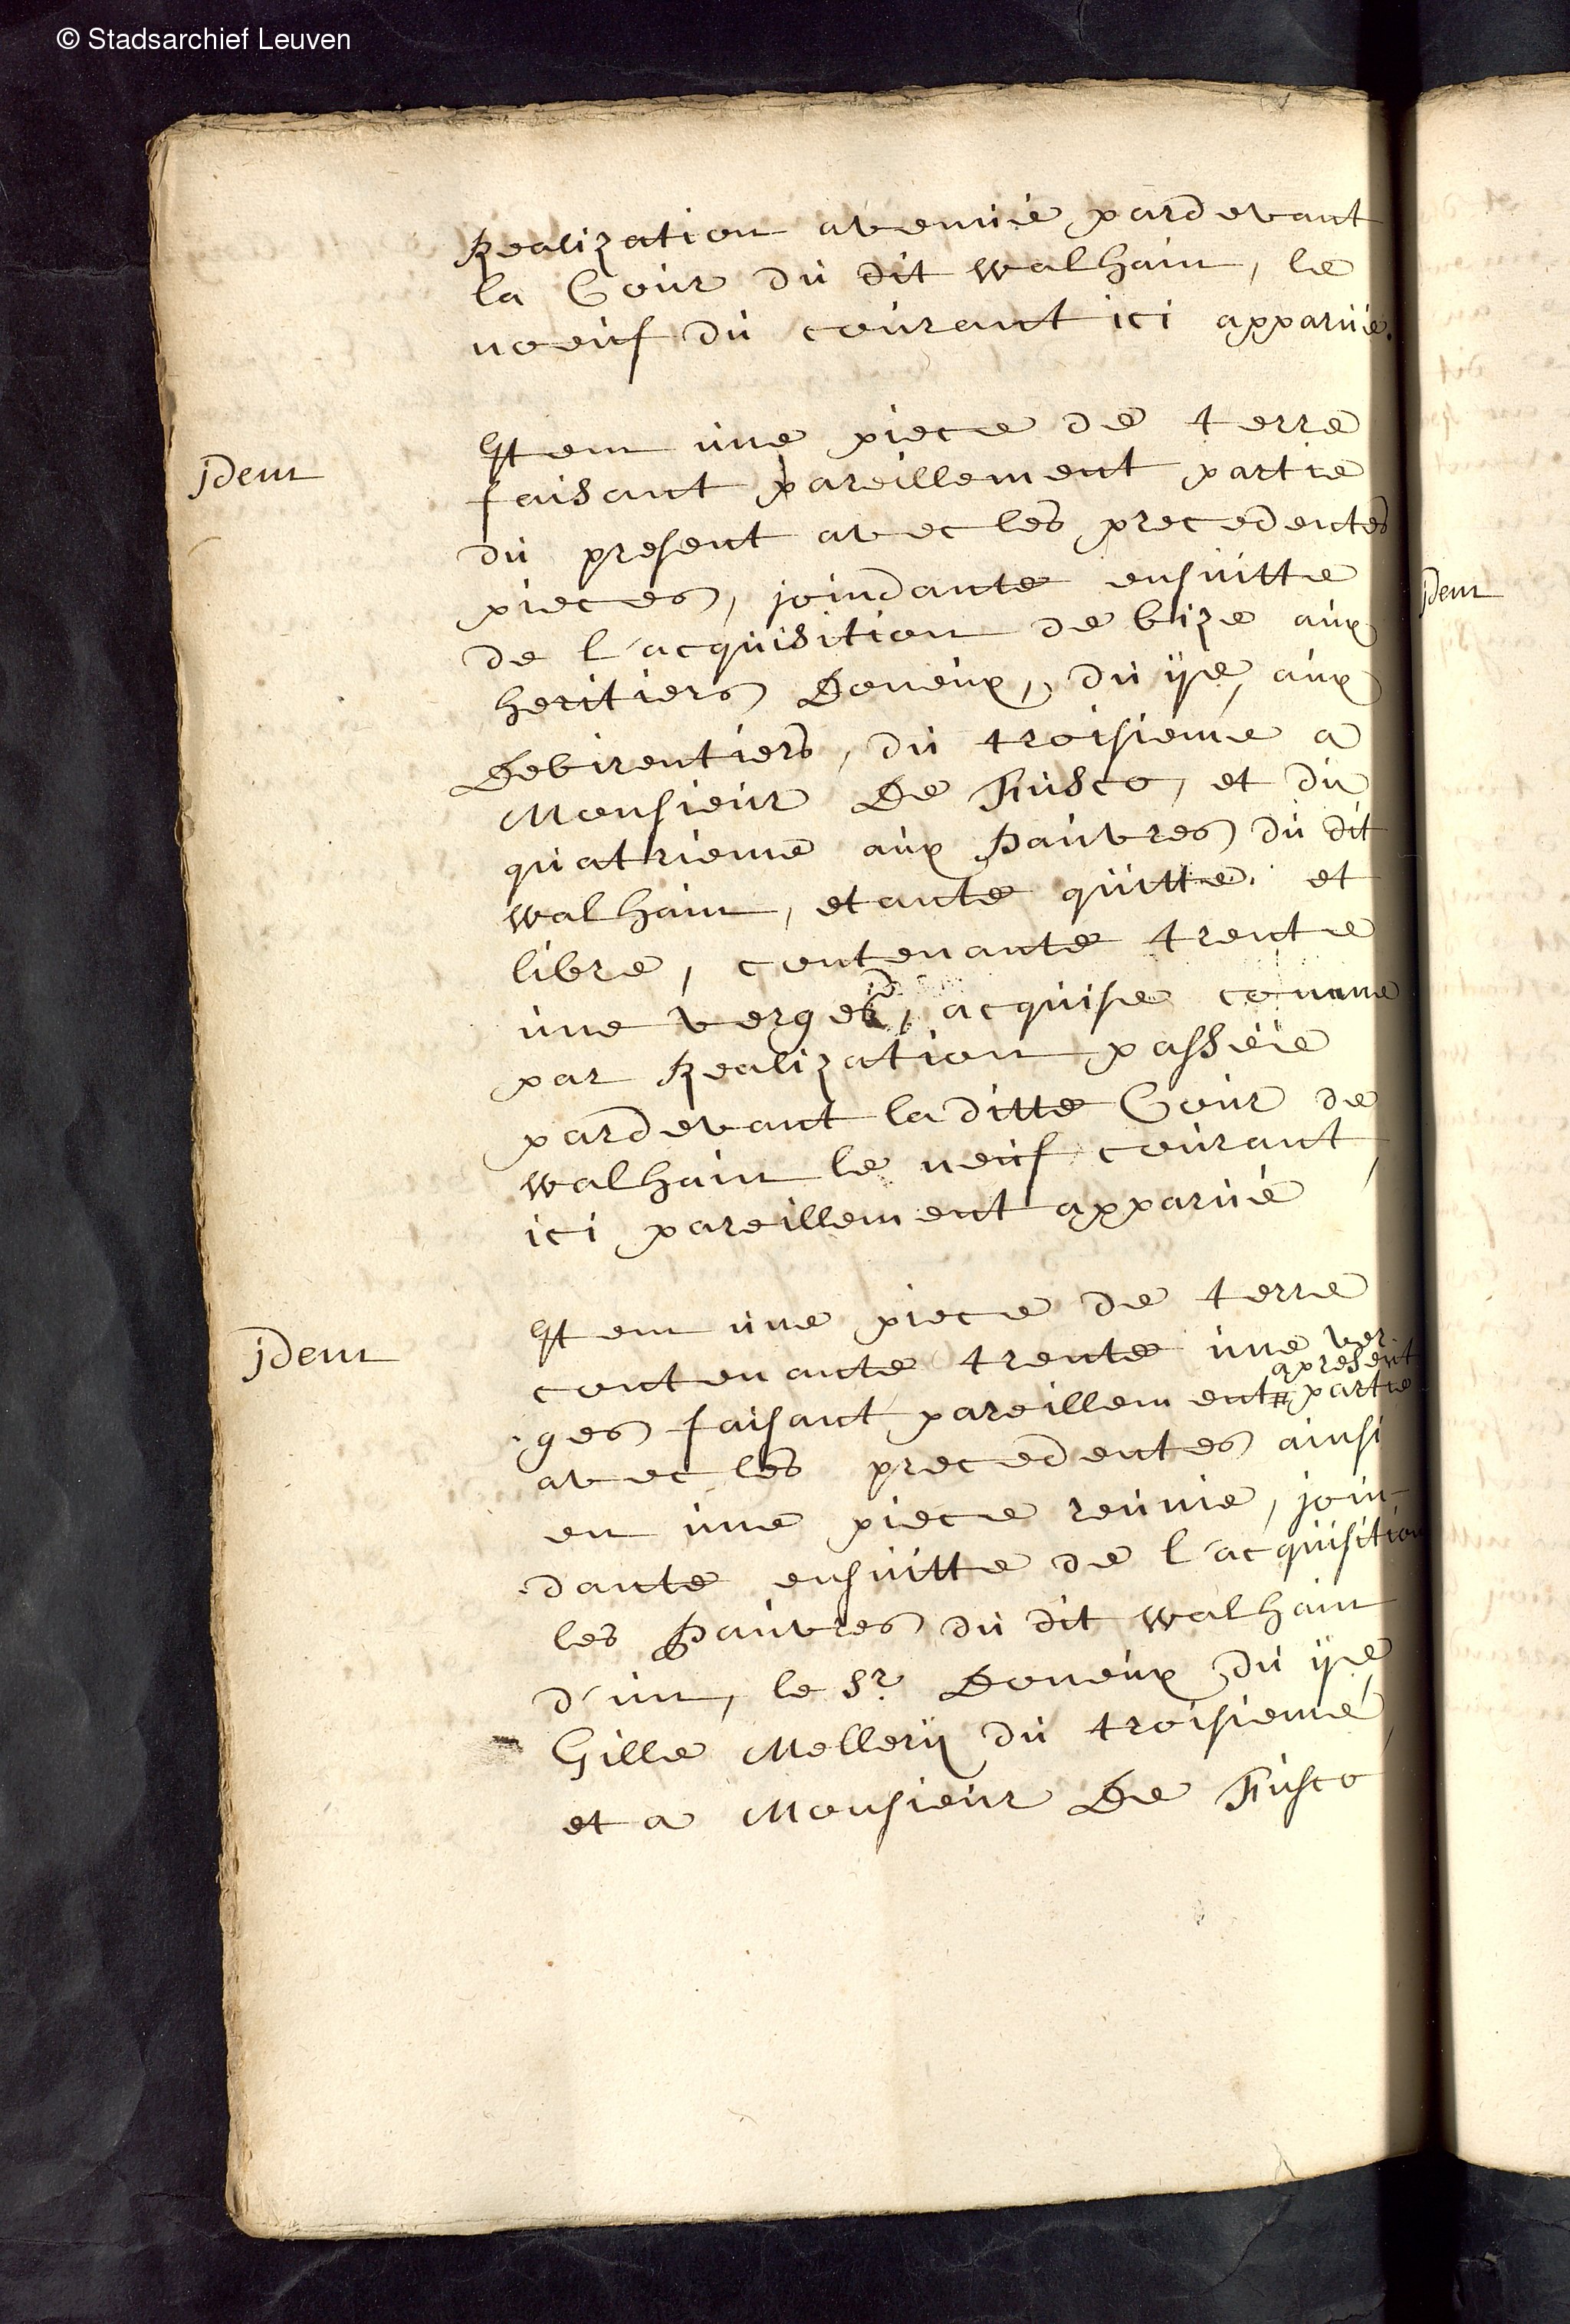 © Stadsarchief Leuven
Realization avenüe pardevant
la Cour du dit walhain, le
noeuf du courant ici apparüe.
jdem
Item une piece de terre
faisant pareillement partie
du present avec les precedentes
pieces, joindante ensuitte
de l'acquisition de bize aux
heritiers Doneux, du ije aux
Debirentiers, du troisieme a
Monsieur De Fusco, et du
quatrieme aux Pauvres du dit
walhain, etante quitte et
libre, contenante trente
une verges, acquise comme
par Realization passéé
pardevant laditte Cour de
walhain le neuf courant,
ici pareillement apparüe
jdem
Item une piece de terre
contenante trente une ver
apresent
ges faisant pareillement # partie
avec les precedentes ainsi
en une piece reunie, join-
dante ensuitte de l'acquisition
les Pauvres du dit walhain
d'un, le Sr. Doneux du ije
Gille Mellerij du troisieme,
et a Monsieur De Fusco
jdem